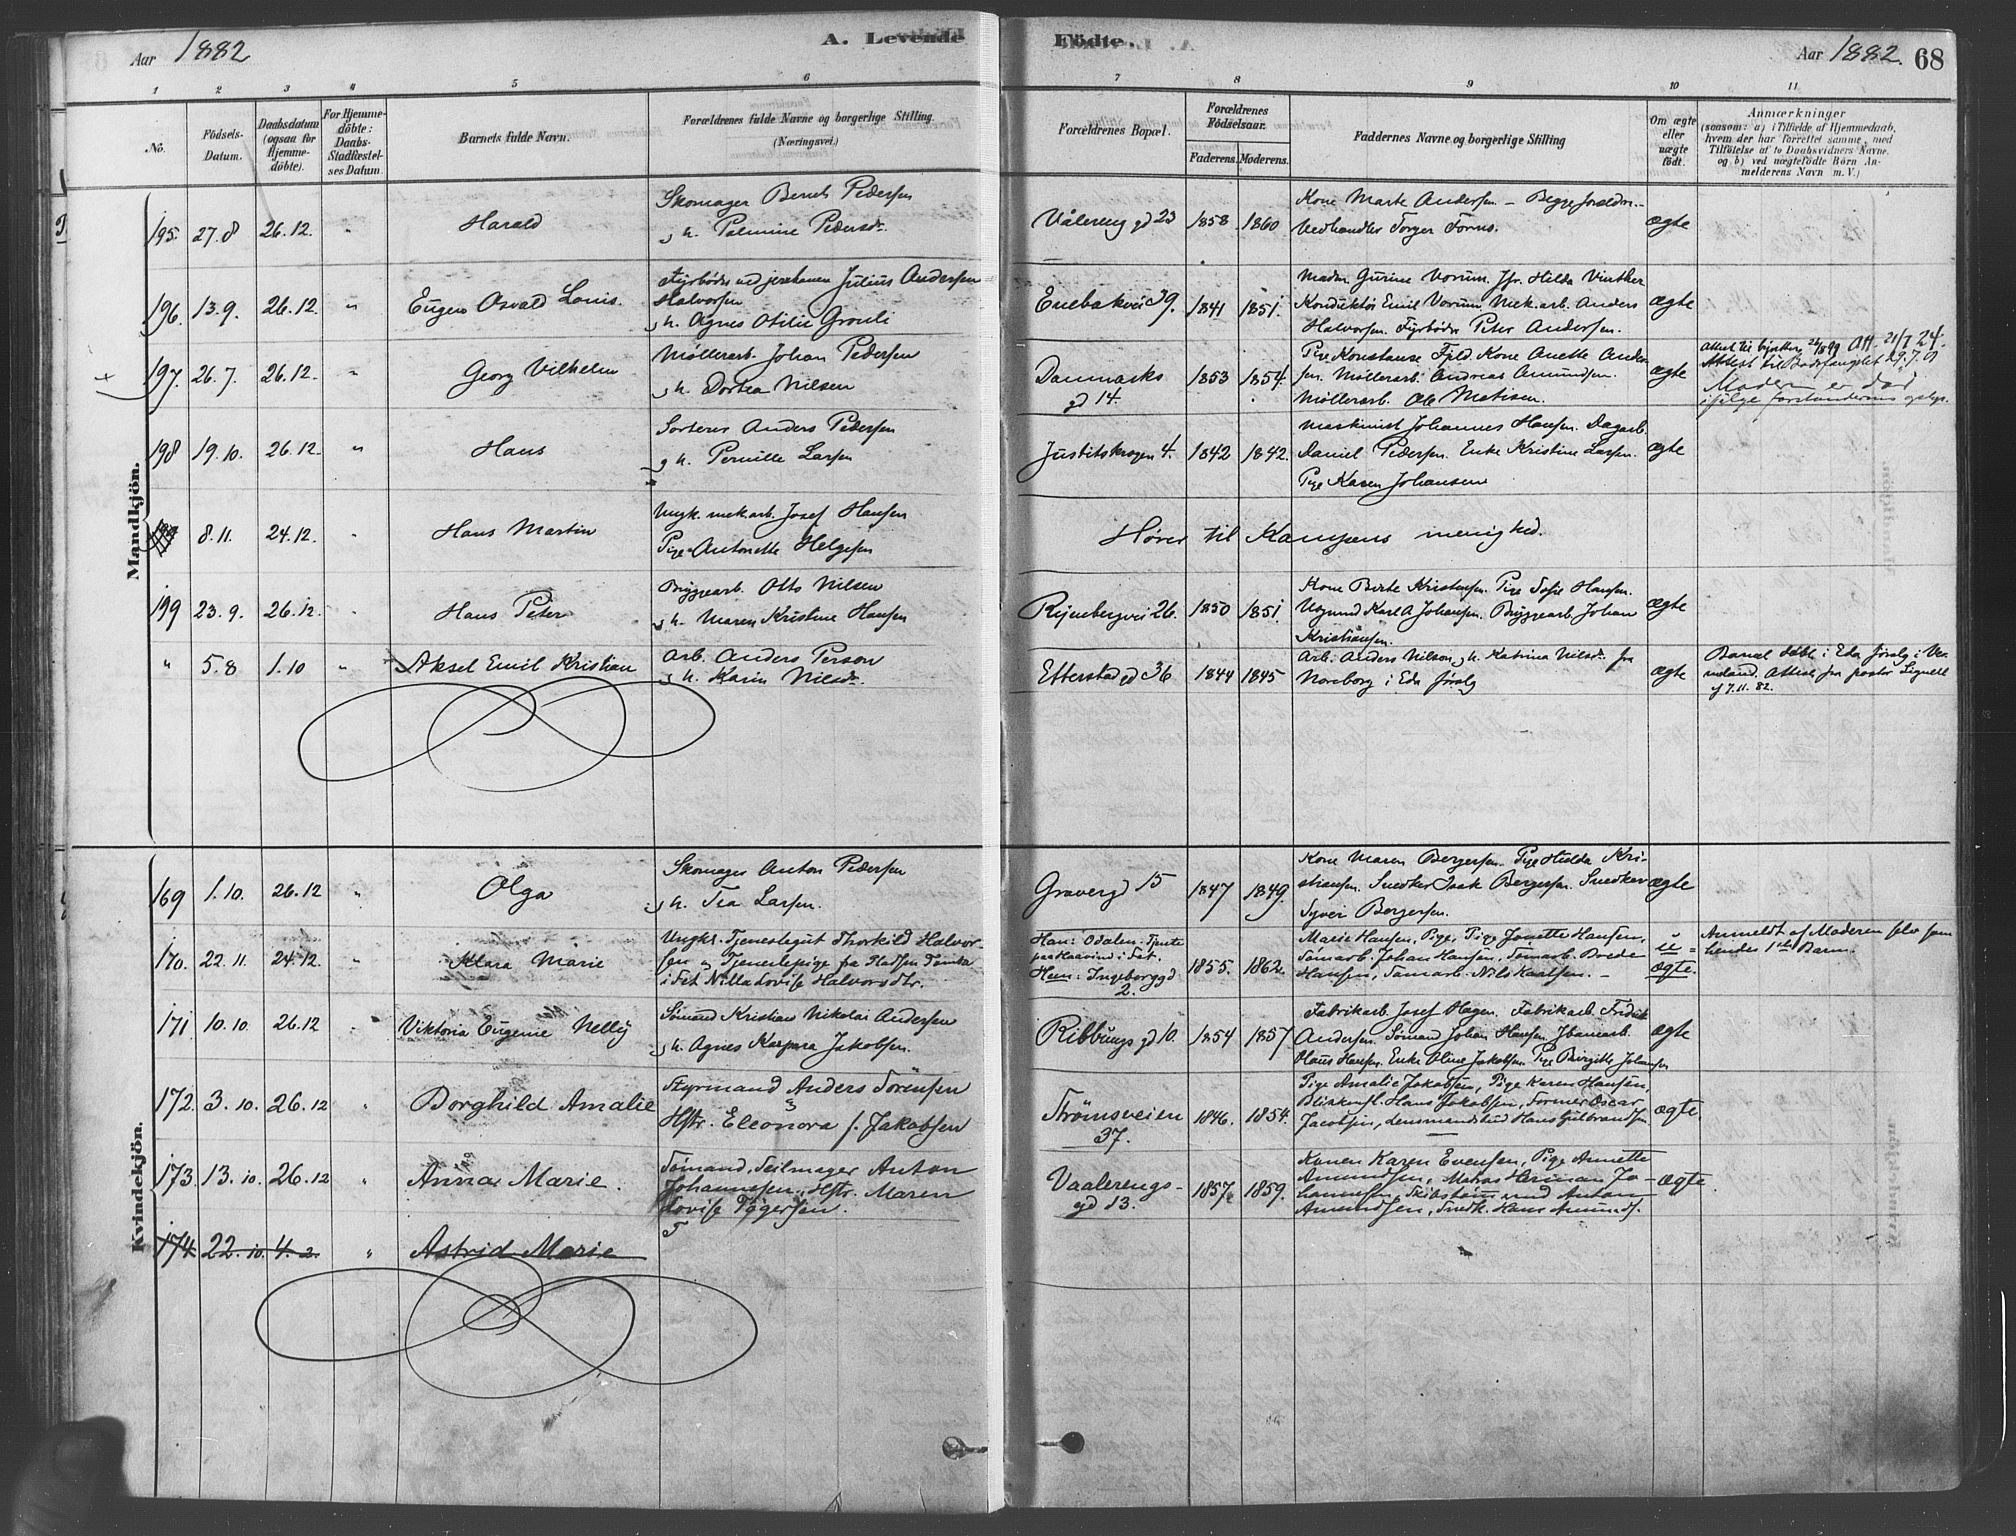 Aar 1882
A. Levende Födte.
Aar 1882. 68
1 2 3 4 5 6 7 8 9 10 11
No.
Födsels-Datum.
Daabsdatum (ogsaa for Hjemmedöbte).
For Hjemmedöbte: Daabs-Stadfæstelses Datum.
Barnets fulde Navn.
Forældrenes fulde Navne og borgerlige Stilling. (Næringsvei.)
Forældrenes Bopæl.
Forældrenes Födselsaar.
Faderens. Moderens.
Faddernes Navne og borgerlige Stilling
Om ægte eller uægte födt.
Anmærkninger
(saasom: a) i Tilfælde af Hjemmedaab,
hvem der har forrettet samme, med
Tilföielse af to Daabsvidners Navne,
og b) ved uægtefödte Börn Anmelderens Navn m. V.)
Mandkjön.
195. 27.8 26.12. " Harald
Skomager Bernt Pedersen
og h. Palmine Pedersdr.
Vålereng gd 23 1858 1860
Kone Marte Andersen - Begge forældre -
Vedhandler Torger
ægte
196. 13.9. 26.12. " Eugen Osvald Louis.
Fyrbøder ved jernbanen Julius Andersen
Halvorsen
og h. Agnes Otilie Grønli
Enebakvei 39. 1841 1851.
Madm Gurine Vorum. Jfr. Hilda Vinther
Konduktør Emil Vorum. Mek.arb. Anders
Halvorsen. Fyrbøder Peter Andersen.
ægte
197. 26.7. 26.12. " Georg Vilhelm
Møllerarb. Johan Pedersen
og h. Dortea Nilsen
Danmarks gd 14. 1853 1854.
Pige Konstanse Fjeld. Kone Anette Andersen. Møllerarb. Andreas Amundsen.
Møllerarb. Ole Matisen.
ægte
Moderen er død
ifølge forstanderens oplys.
198 19.10. 26.12. " Hans
Sorterer Anders Pedersen
og h. Pernille Larsen
Justitskrogen 4. 1842 1842.
Maskinist Johannes Hansen. Dagarb.
Daniel Pedersen. Enke Kristine Larsen.
Pige Karen Johansen
ægte
8.11. 24.12. " Hans Martin
Ungk. mek.arb. Josef Hansen
Pige Antonette Helgesen
Hører til Kampens menighed.
199 23.9. 26.12. " Hans Peter
Bryggearb. Otto Nilsen
og h. Maren Kristine Hansen
26. 1850 1851.
Kone Berte Kristensen. Pige Sofie Hansen.
Ungmand Karl A Johansen. Bryggearb. Johan
Kristiansen.
ægte
" 5.8 1.10 " Aksel Emil Kristian
Arb. Anders Person
og h. Karin Nilsdr.
Etterstad gd 36 1844 1845
Arb. Anders Nilson, og h. Katrina Nilsdr. fra
Noreborg i Eda forsg
ægte
Barnet døbt i Eda forsg i Vermeland. Attest fra pastor Lignell
af 7.11.82.
Kvindekjön.
169 1.10. 26.12 " Olga
Skomager Anton Pedersen
og h. Tea Larsen.
Gravergd 15 1847 1849.
Kone Maren Bergersen. Pige Hilda Kristiansen. Snedker Isak Bergersen. Snedker
Syver Bergersen.
ægte
170. 22.11. 24.12. " Klara Marie
Ungkr. Tjenestegut Thorkild Halvorsen og Tjenestepige fra
i Fet Nilla Lovise Halvorsdtr.
Han: Odalen. Tjente
paa i Fet.
Hun: Ingeborggd 2. 1855. 1862.
Marie Hansen, Pige, Pige Janette Hansen,
Tømarb. Johan Hansen, Tømarb. Brede
Hansen, Tømarb. Nils Kaalsen. -
u = ægte.
Anmeldt af Moderen selv som
hendes 1ste Barn.
171. 10.10. 26.12 " Viktoria Eugenie Nelly
Sömand Kristian Nikolai Andersen
og h. Agnes Kaspara Jakobsen.
Ribbungs gd 10. 1854 1857
Fabrikarb. Josef Hagen. Fabrikarb. Fredrik
Andersen. Sømand Johan Hansen. Jbanearb.
Hans Hansen. Enke Oline Jakobsen. Pige Birgitte Johansen
ægte
172. 3.10. 26.12 " Borghild Amalie
Styrmand Anders Sørensen
&
Hstr. Eleonora f. Jakobsen
Strømsveien 37. 1846. 1854.
Pige Amalie Jakobsen, Pige Karen Hansen,
Blikkensl. Hans Jakobsen, Former Oscar
Jacobsen, Lensmandsbud Hans Gulbrandsen
ægte.
173. 13.10. 26.12 " Anna Marie.
Sømand, Seilmager Anton
Johannesen. Hstr. Maren
Lovise Tøgersen.
Vaalerengs-gd 13. 1857. 1859.
Konen Karen Evensen, Pige Annette
Amundsen, Matros Herman Johannesen, Skibstømmermd Anton
Amundsen, Snedk. Hans Amunds.
ægte.
174. 22.10. 4.2. " Astrid Marie